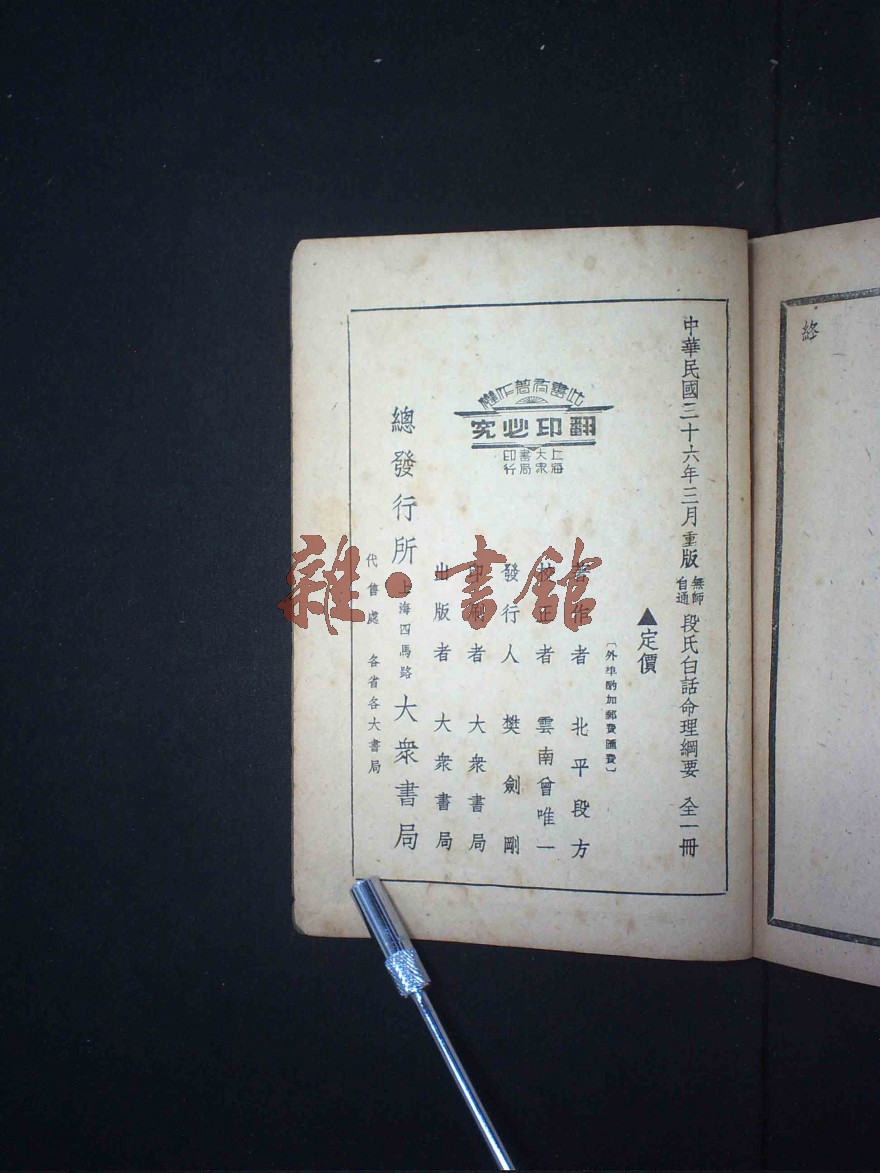 終
中華民國三十六年三月重版
無師自通
段氏白話命理綱要 全一冊
▲定價
〔外埠酌加郵費匯費〕
著作者 北平段方
校正者 雲南曾唯一
發行人 樊劍剛
印刷者 大衆書局
出版者 大衆書局
此書有著作權
翻印必究
上海
大衆
書局
印行
總發行所 上海四馬路 大衆書局
代售處 各省各大書局
雜·書館